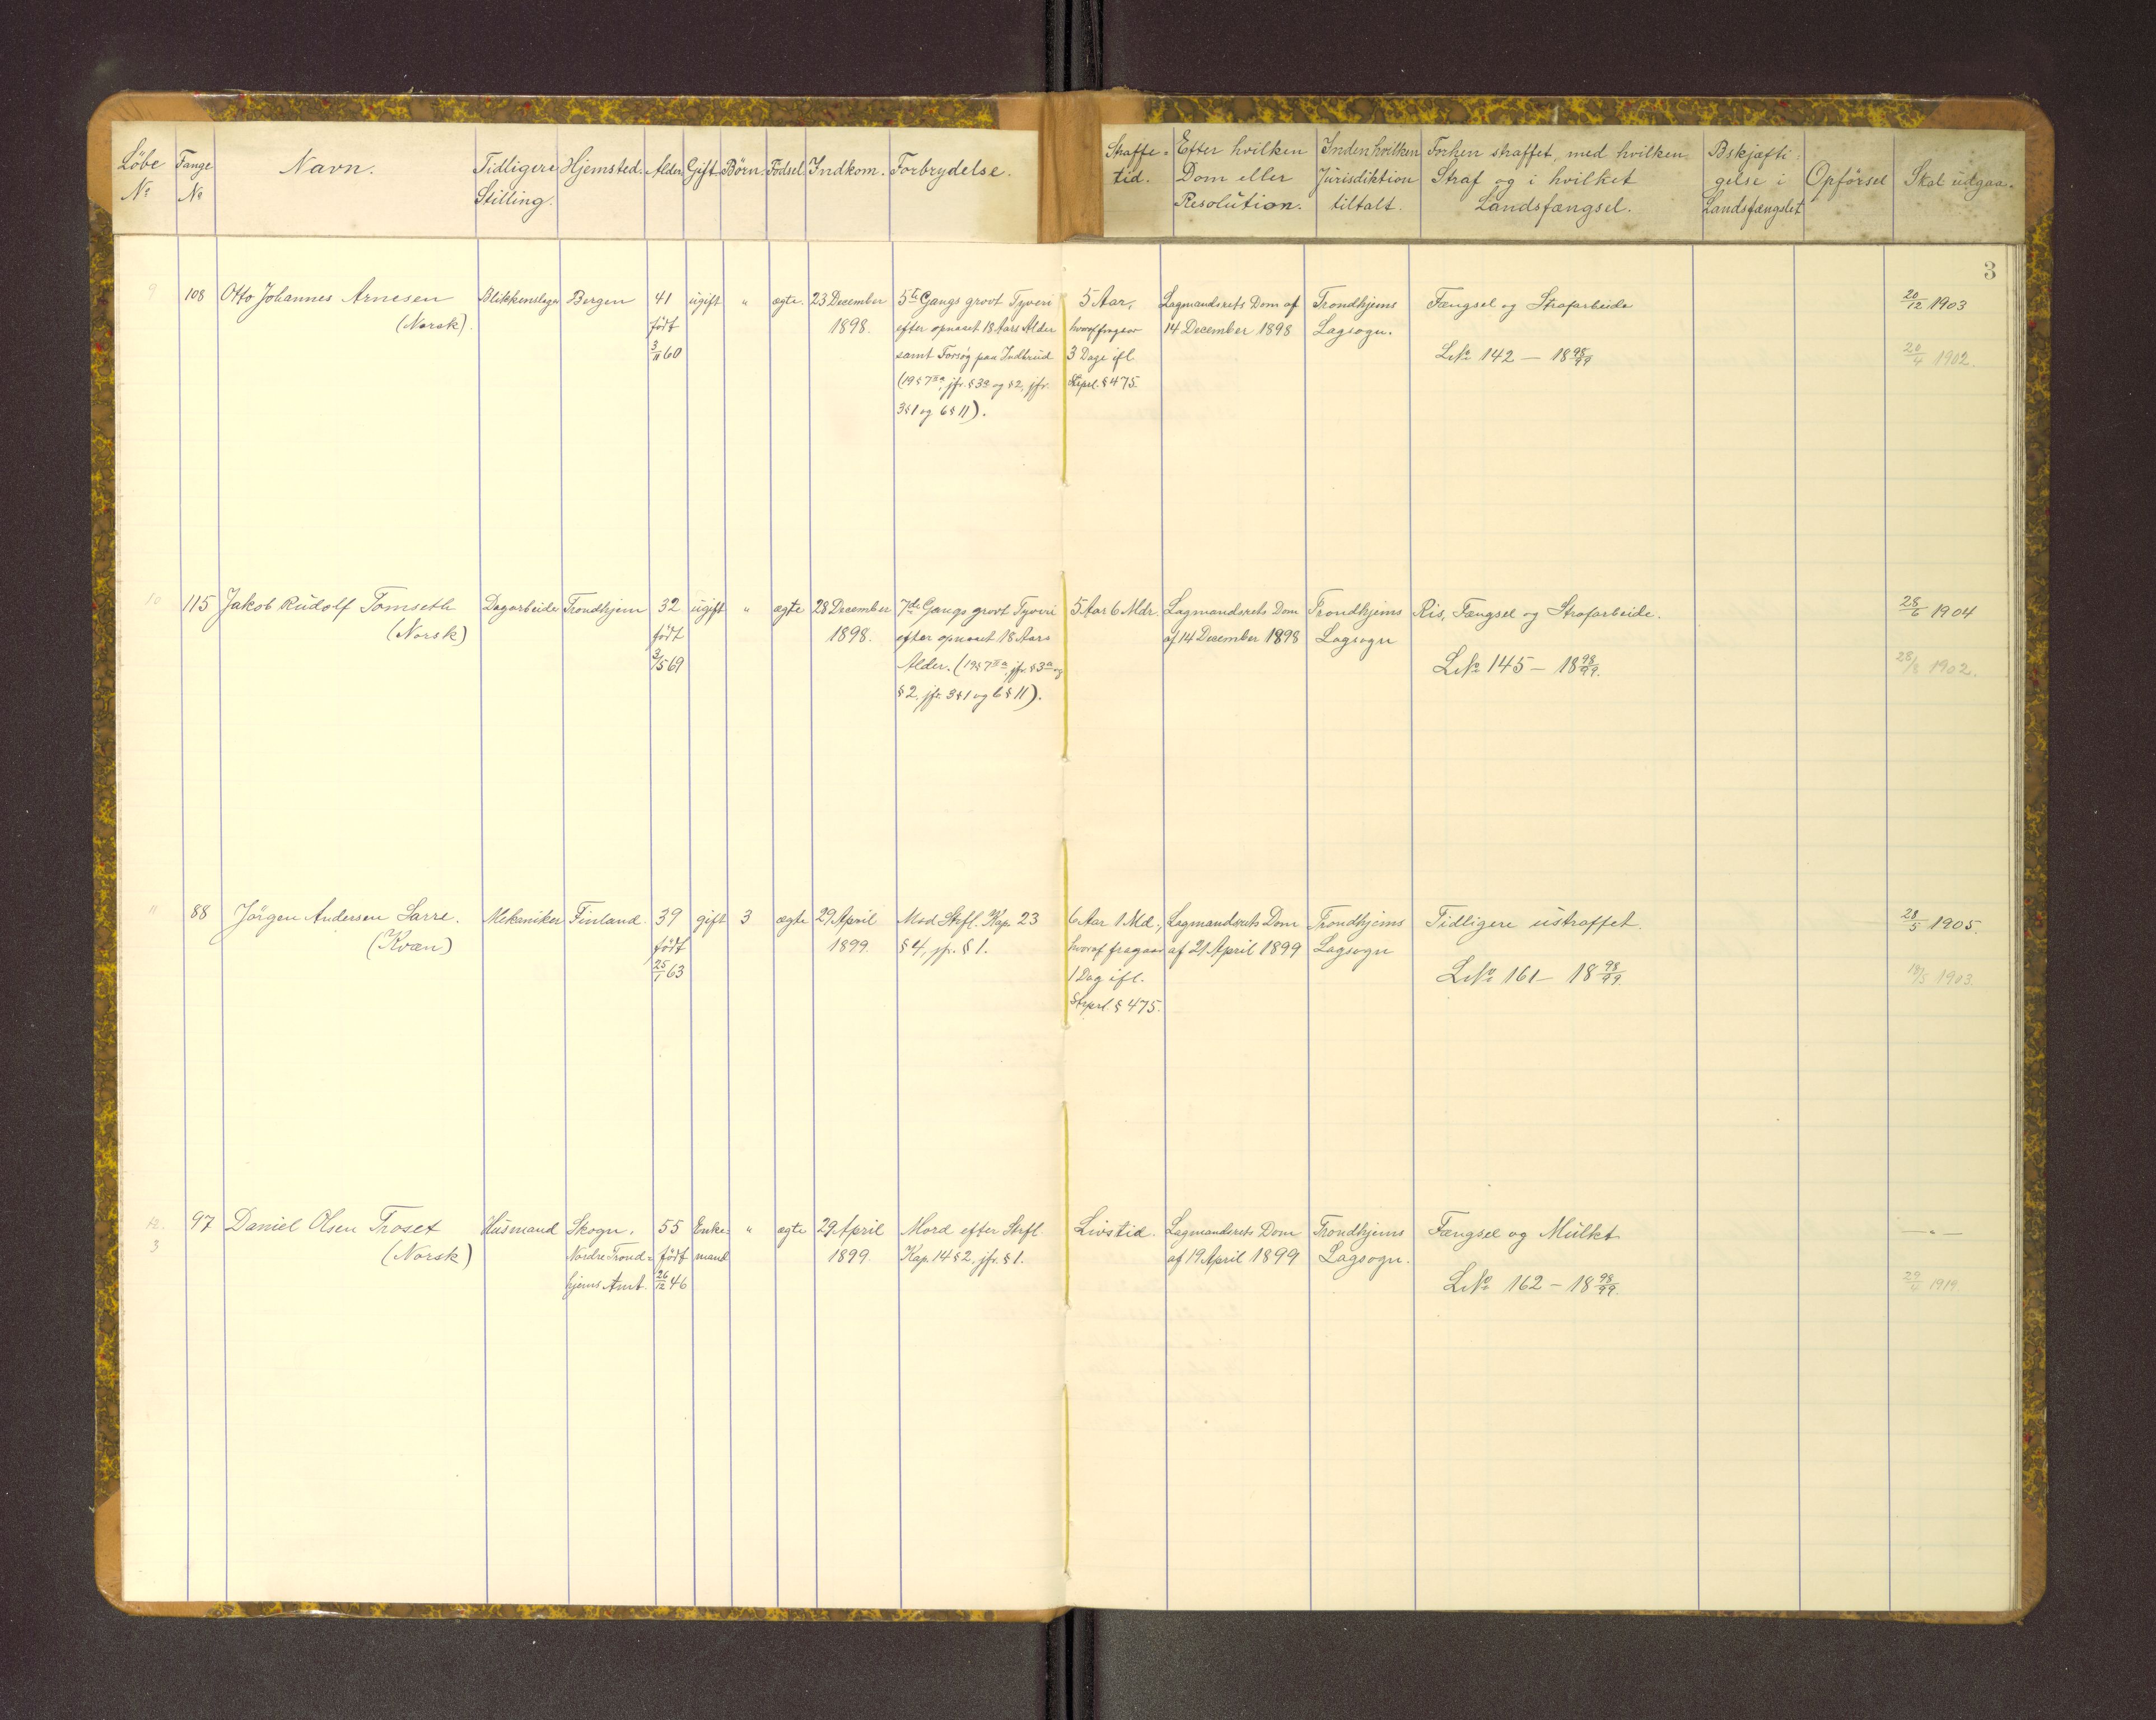 Löbe No
Fange No
Navn.
Tidligere Stilling.
Hjemsted.
Alder
Gift
Börn.
Födsel
Indkom.
Forbrydelse.
Straffe=tid.
Efter hvilken Dom eller Resolution.
Inden hvilken Jurisdiktion tiltalt.
Forhen straffet, med hvilken Straf og i hvilket Landsfængsel.
Bskjæftigelse i Landsfængslet
Opförsel
Skal udgaa.
3
9
108
Otto Johannes Arnesen
(Norsk).
Blikkenslager
Bergen
41
født
3/11 60
ugift
"
ægte.
23 December
1898.
5te Gangs grovt Tyveri
efter opnaaet 18 Aars Alder
samt Forsøg paa Indbrud
(19 § 7 IIa, jfr. § 3a og § 2, jfr.
3 § 1 og 6 § 11).
5 Aar,
hvoraf fragaar
3 Dage ifl.
Strpcl. § 475.
Lagmandsrets Dom af
14 December 1898
Trondhjems
Lagsogn.
Fængsel og Strafarbeide
L. No 142 — 18 98/99
20/12 1903
20/4 1902.
10
115
Jakob Rudolf Tomseth
(Norsk)
Dagarbeider
Trondhjem
32
født
3/5 69
ugift
"
ægte
28 December
1898.
7de Gangs grovt Tyveri
efter opnaaet 18 Aars
Alder. (19 § 7 IIa, jfr. § 3a og
§ 2, jfr. 3 § 1 og 6 § 11).
5 Aar 6 Mdr.
Lagmandsrets Dom
af 14 December 1898
Trondhjems
Lagsogn
Ris, Fængsel og Strafarbeide.
L. No 145 — 18 98/99.
28/6 1904
28/8 1902.
11
88
Jörgen Andersen Sarre.
(Kvæn)
Mekaniker
Finland.
39
født
25/1 63
gift
3
ægte
29 April
1899.
Mod Strfl. Kap. 23
§ 4, jfr. § 1.
6 Aar 1 Md.,
hvoraf fragaar
1 Dag ifl.
Strpcl. § 475.
Lagmandsrets Dom
af 21 April 1899
Trondhjems
Lagsogn
Tidligere ustraffet.
L. No 161 — 18 98/99.
28/5 1905.
1903.
12.
3
97
Daniel Olsen Troset
(Norsk)
Husmand
Skogn.
Nordre Trond=
hjems Amt.
55
født
26/12 46
Enke=
mand
"
ægte
29 April
1899.
Mord efter Strfl.
Kap. 14 § 2, jfr. § 1.
Livstid.
Lagmandsrets Dom
af 19 April 1899
Trondhjems
Lagsogn.
Fængsel og Mülkt
L. No 162 — 18 98/99.
— " —
29/4 1919